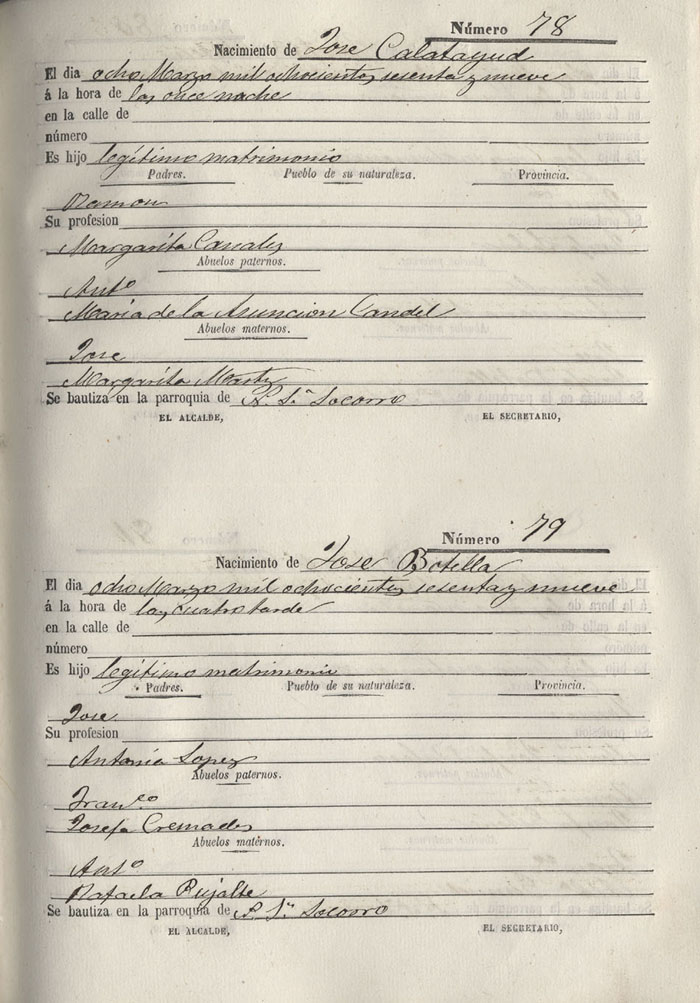 Número 78
Nacimiento de Jose Calatayud
El dia ocho Marzo mil ochocientos sesenta y nueve
á la hora de las once noche
en la calle de
número
Es hijo legítimo matrimonio
Padres. Pueblo de su naturaleza. Provincia.
Ramon
Su profesion
Margarita Canales
Abuelos paternos.
Antº
Maria de la Asuncion Candel
Abuelos maternos.
Jose
Margarita
Se bautiza en la parroquia de N. Sª Socorro
EL ALCALDE, EL SECRETARIO,
Número 79
Nacimiento de Jose Botella
El dia ocho Marzo mil ochocientos sesenta y nueve
á la hora de las cuatro tarde
en la calle de
número
Es hijo legítimo matrimonio
Padres. Pueblo de su naturaleza. Provincia.
Jose
Su profesion
Antonia Lopez
Abuelos paternos.
Franco
Josefa Cremades
Abuelos maternos.
Antº
Rafaela Pujalte
Se bautiza en la parroquia de N. Sª Socorro
EL ALCALDE, EL SECRETARIO,